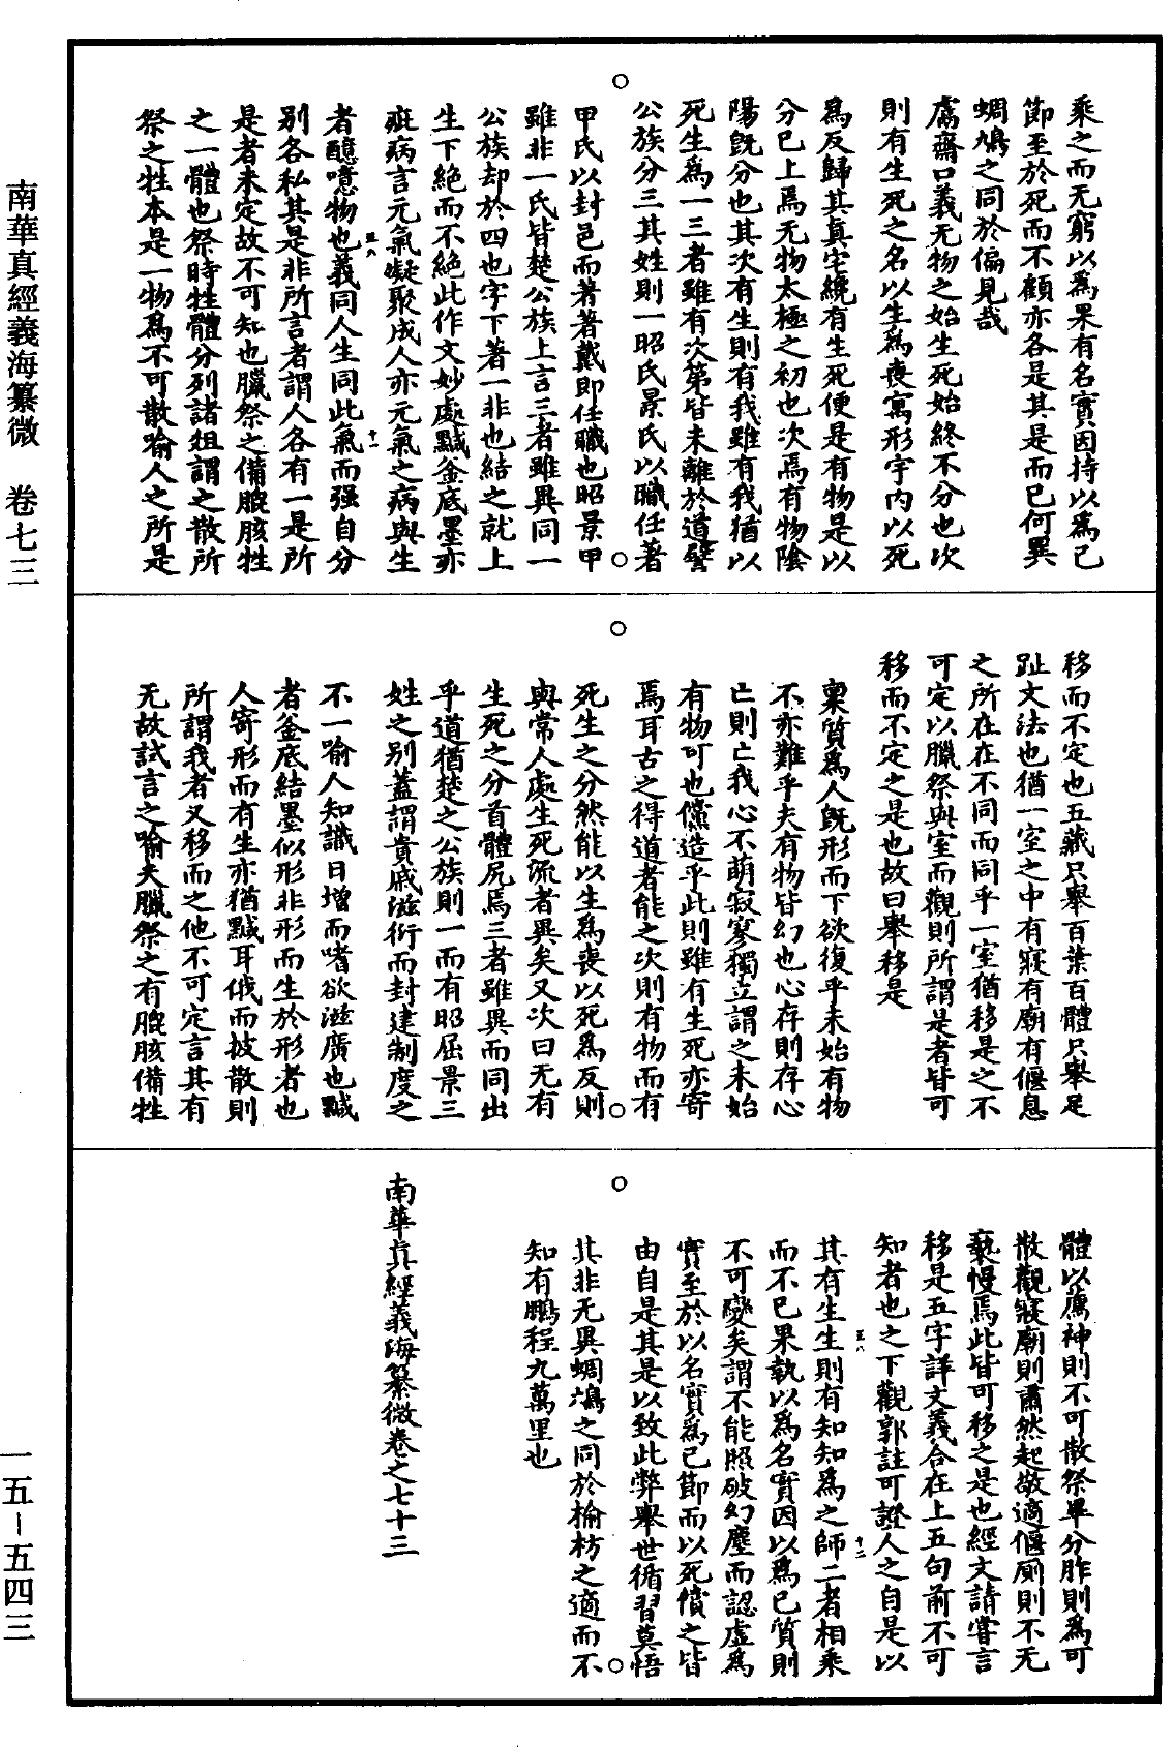 南華真經義海纂微　卷七三
一五—五四三
乘之而无窮以為果有名實因持以為己
節至於死而不顧亦各是其是而已何異
蜩鳩之同於偏見哉
鬳齋口義无物之始生死始終不分也次
則有生死之名以生為喪寓形宇內以死
為反歸其真宅纔有生死便是有物是以
分已上焉无物太極之初也次焉有物陰
陽既分也其次有生則有我雖有我猶以
死生為一三者雖有次第皆未離於道譬
公族分三其姓則一昭氏景氏以職任著
甲氏以封邑而著著戴即任職也昭景甲
雖非一氏皆楚公族上言三者雖異同一
公族却於四也字下著一非也結之就上
生下絕而不絕此作文妙處黬釜底墨亦
疵病言元氣凝聚成人亦元氣之病與生
者醷噫物也義同人生同此氣而强自分
別各私其是非所言者謂人各有一是所
是者未定故不可知也臘祭之備膍胲牲
之一體也祭時牲體分列諸俎謂之散所
祭之牲本是一物為不可散喻人之所是
移而不定也五藏只舉百葉百體只舉足
趾文法也猶一室之中有寢有廟有偃息
之所在在不同而同乎一室猶移是之不
可定以臘祭與室而觀則所謂是者皆可
移而不定之是也故曰舉移是
稟質為人既形而下欲復乎未始有物
不亦難乎夫有物皆幻也心存則存心
亡則亡我心不萌寂寥獨立謂之未始
有物可也儻造乎此則雖有生死亦寄
焉耳古之得道者能之次則有物而有
死生之分然能以生為喪以死為反則
與常人處生死流者異矣又次曰无有
生死之分首體尻焉三者雖異而同出
乎道猶楚之公族則一而有昭屈景三
姓之別蓋謂貴戚滋衍而封建制度之
不一喻人知識日增而嗜欲滋廣也黬
者釜底結墨似形非形而生於形者也
人寄形而有生亦猶黬耳俄而披散則
所謂我者又移而之他不可定言其有
无故試言之喻夫臘祭之有膍胲備牲
體以薦神則不可散祭畢分胙則為可
散觀寢廟則肅然起敬適偃厠則不无
褻慢焉此皆可移之是也經文請嘗言
移是五字詳文義合在上五句前不可
知者也之下觀郭註可證人之自是以
其有生生則有知知為之師二者相乘
而不已果執以為名實因以為己質則
不可變矣謂不能照破幻塵而認虛為
實至於以名實為己節而以死償之皆
由自是其是以致此弊舉世循習莫悟
其非无異蜩鳩之同於榆枋之適而不
知有鵬程九萬里也
南華真經義海纂微卷之七十三